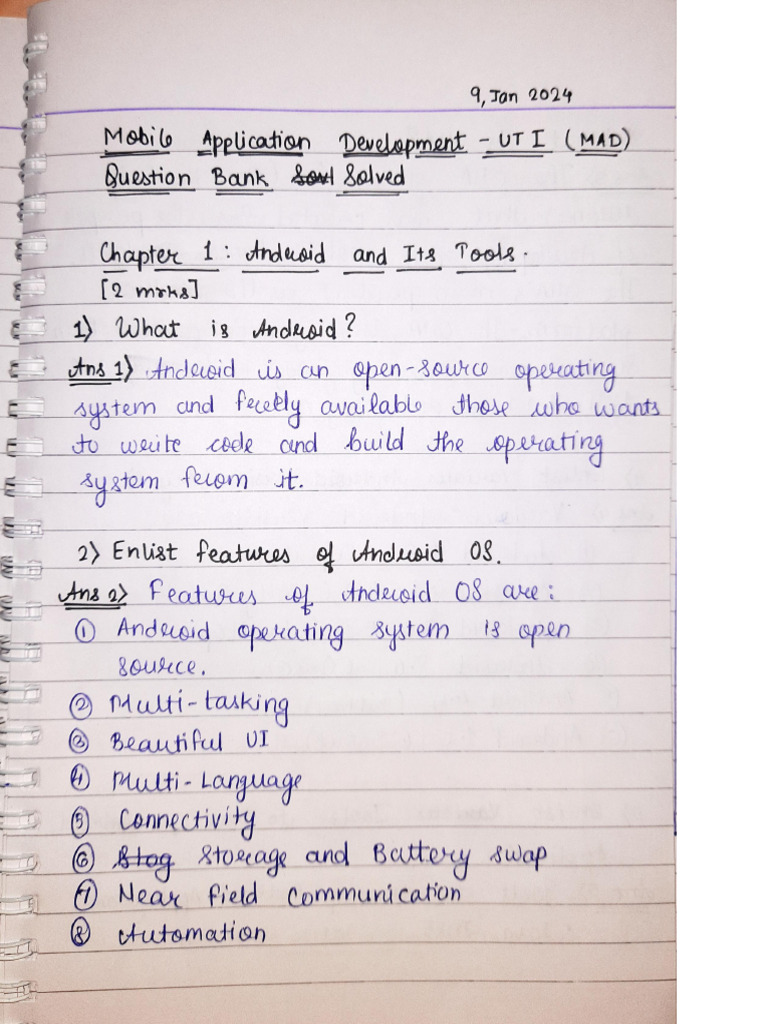 9, Jan 2024
Mobile Application Development - UT I (MAD)
Question Bank Solved
Chapter 1 : Android and Its Tools.
[2 mrks]
1) What is Android?
Ans 1) Android is an open-source operating
system and freely available those who wants
to write code and build the operating
system from it.
2) Enlist features of Android OS.
Ans 2) Features of Android OS are :
① Android operating system is open
source.
② Multi-tasking
③ Beautiful UI
④ Multi-Language
⑤ Connectivity
⑥ Stog Storage and Battery swap
⑦ Near Field Communication
⑧ Automation